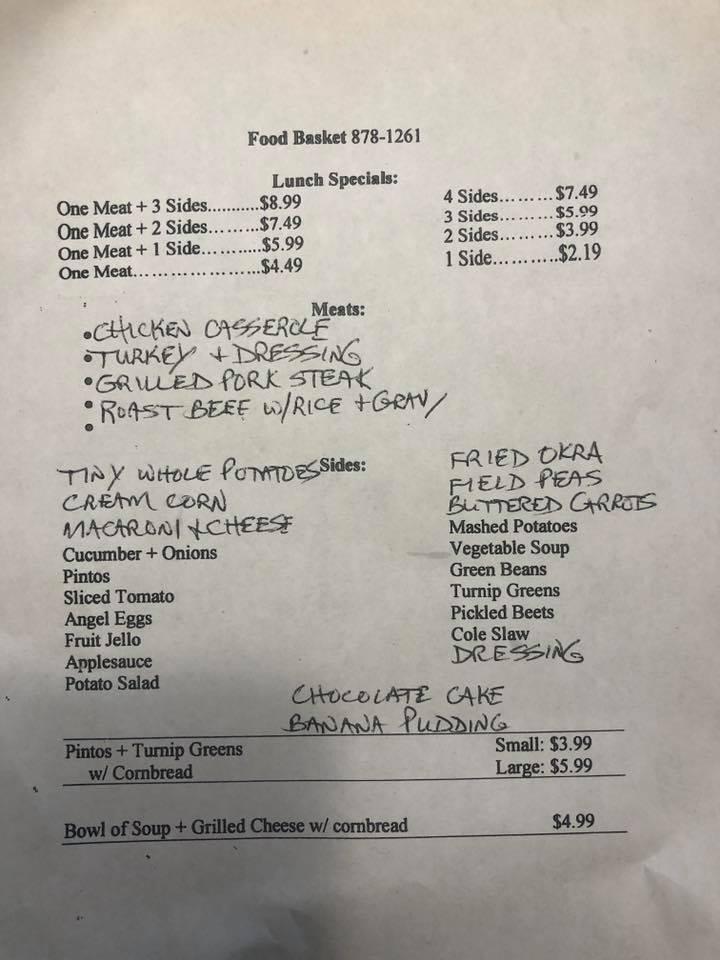 Food Basket 878-1261
Lunch Specials:
One Meat + 3 Sides...........$8.99
One Meat + 2 Sides.........$7.49
One Meat + 1 Side...........$5.99
One Meat........................$4.49
4 Sides.........$7.49
3 Sides.........$5.99
2 Sides.........$3.99
1 Side...........$2.19
Meats:
• CHICKEN CASSEROLE
• TURKEY + DRESSING
• GRILLED PORK STEAK
• ROAST BEEF W/RICE + GRAVY
•
Sides:
TINY WHOLE POTATOES
CREAM CORN
MACARONI & CHEESE
Cucumber + Onions
Pintos
Sliced Tomato
Angel Eggs
Fruit Jello
Applesauce
Potato Salad
FRIED OKRA
FIELD PEAS
BUTTERED CARROTS
Mashed Potatoes
Vegetable Soup
Green Beans
Turnip Greens
Pickled Beets
Cole Slaw
DRESSING
CHOCOLATE CAKE
BANANA PUDDING
Pintos + Turnip Greens Small: $3.99
w/ Cornbread Large: $5.99
Bowl of Soup + Grilled Cheese w/ cornbread $4.99